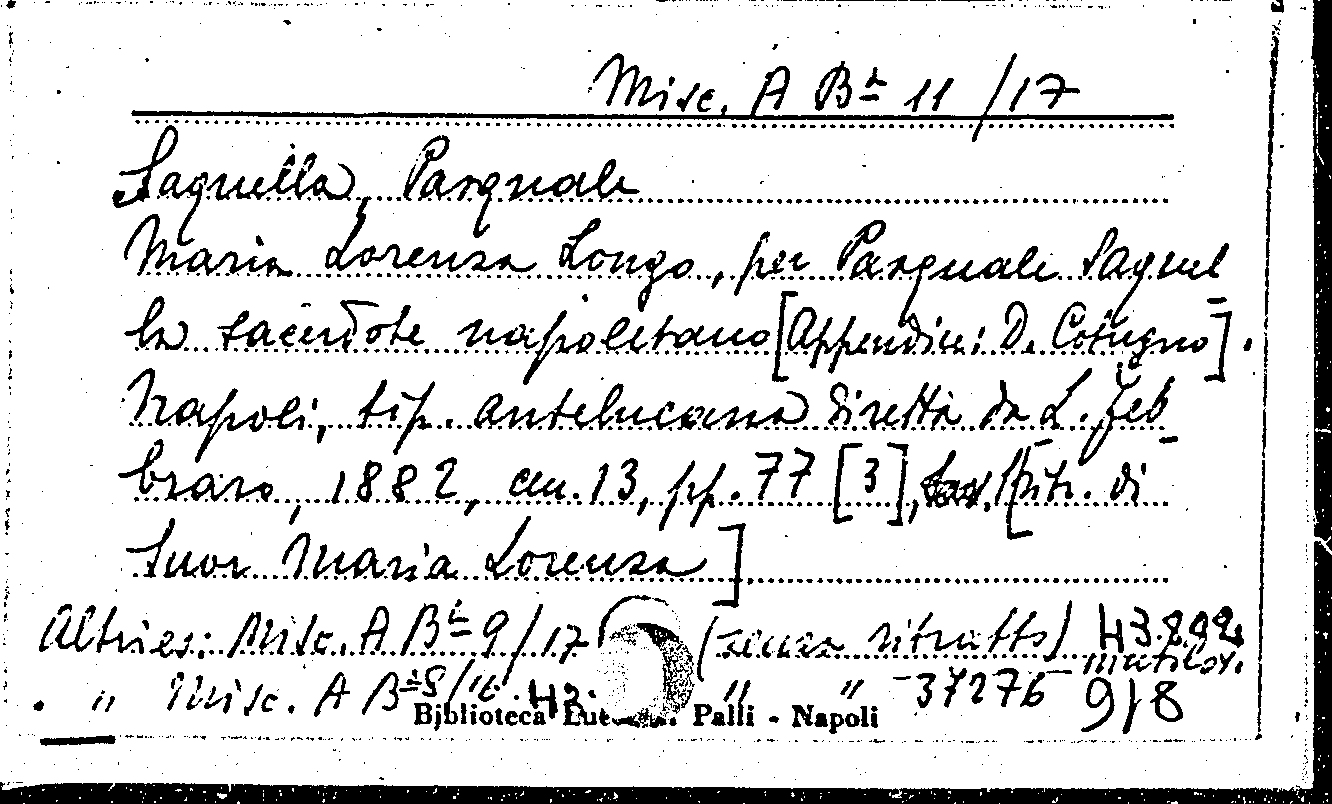 Misc. A Bta 11/17
Saquella, Pasquale
Maria Lorenza Longo, per Pasquale Saquel
la sacerdote napoletano [Appendice: D. Cotugno].
Napoli, tip. antelucana diretta da L. Feb
braro, 1882, cm. 13, pp. 77 [3], [ritr. di
Suor Maria Lorenza]
Altri es: Misc. A Bta 9/17 (senza ritratto) H3.292.
" Misc. A B " " 37276 9/8
Biblioteca Palli - Napoli